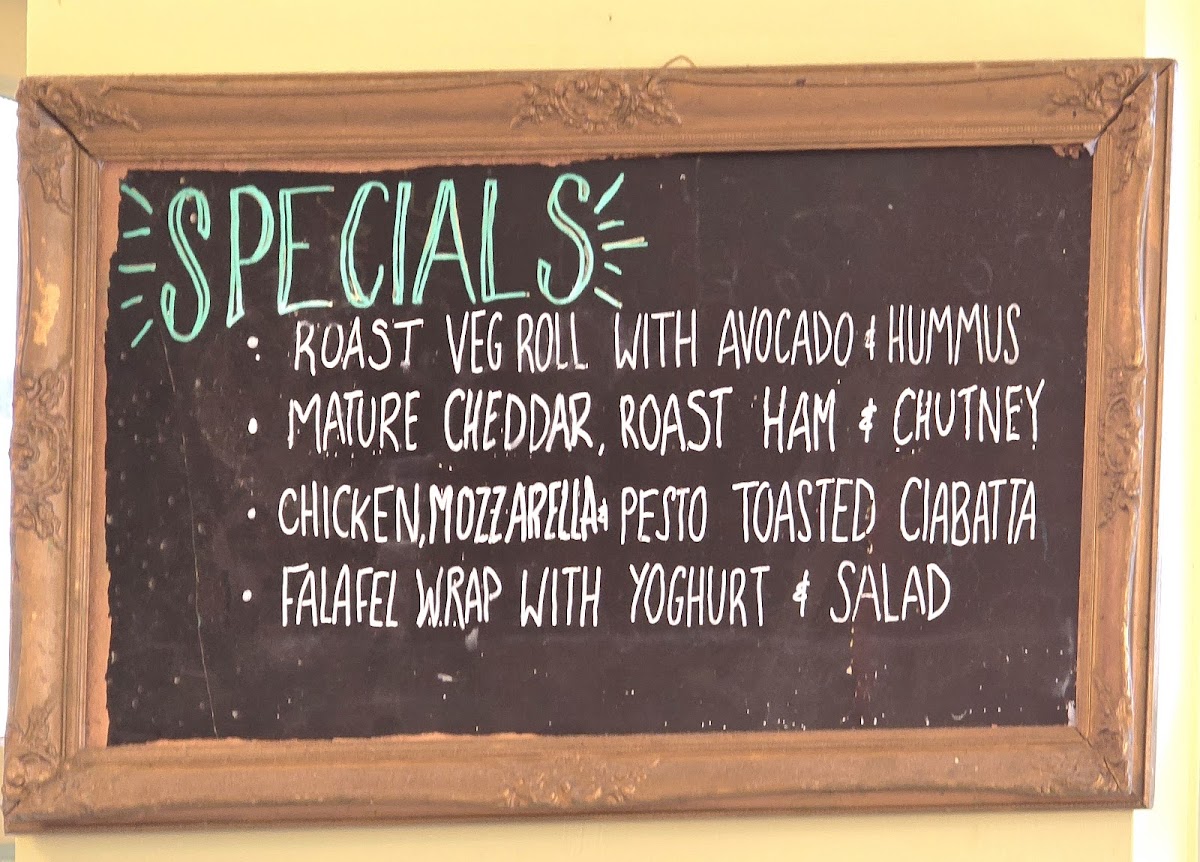 SPECIALS
• ROAST VEG ROLL WITH AVOCADO & HUMMUS
• MATURE CHEDDAR, ROAST HAM & CHUTNEY
• CHICKEN, MOZZARELLA & PESTO TOASTED CIABATTA
• FALAFEL WRAP WITH YOGHURT & SALAD